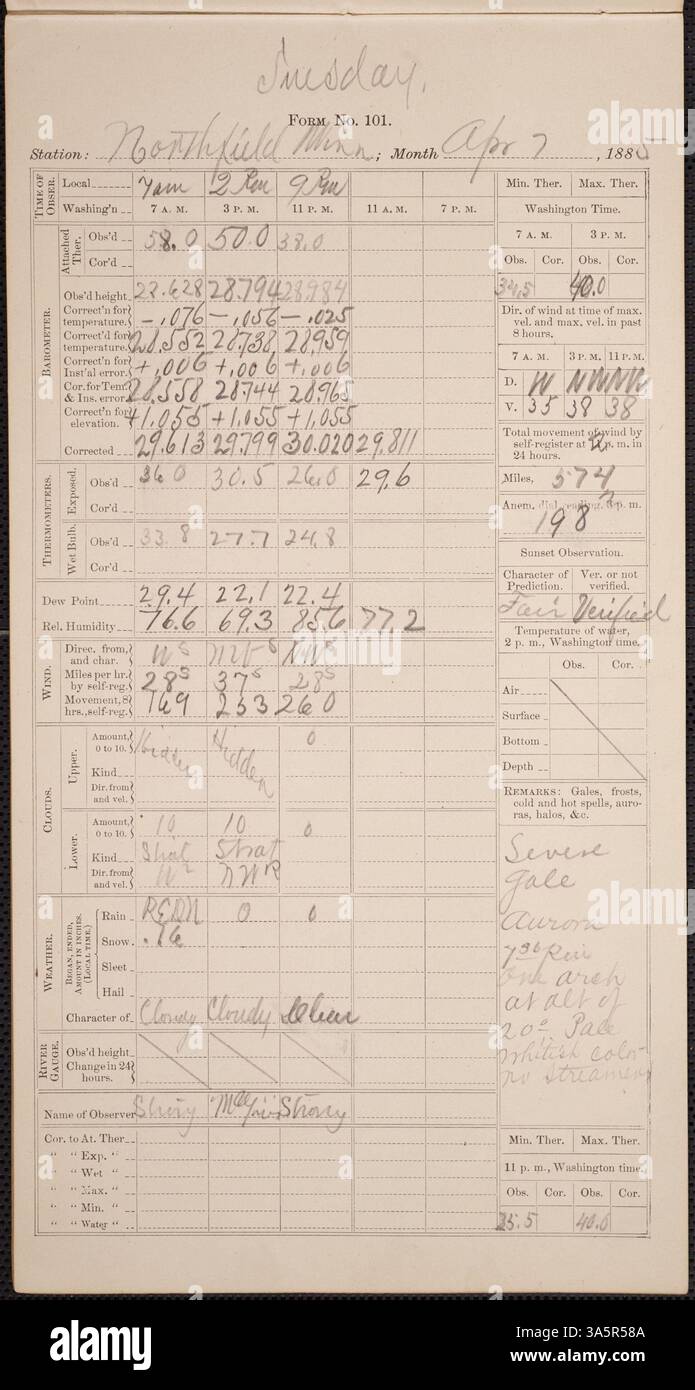 Tuesday.
FORM No. 101.
Station: Northfield Minn; Month Apr 7, 1885
TIME OF OBSER. Local 7 am 2 Pm 9 Pm
Washing'n 7 A. M. 3 P.M. 11 P.M. 11 A. M. 7 P. M.
BAROMETER.
Attached Ther. Obs'd 58.0 50.0 38.0
Cor'd
Obs'd height 28.628 28.794 28.984
Correct'n for temperature. -.076 -.056 -.025
Correct'd for temperature. 28.552 28.738 28.959
Correct'n for Inst'al error. +.006 +.006 +.006
Cor. for Tem. & Ins. error. 28.558 28.744 28.965
Correct'n for elevation. +1.055 +1.055 +1.055
Corrected 29.613 29.799 30.020 29.811
THERMOMETERS.
Exposed. Obs'd 36.0 30.5 26.0 29.6
Cor'd
Wet Bulb. Obs'd 33.8 27.7 24.8
Cor'd
Dew Point 29.4 22.1 22.4
Rel. Humidity 76.6 69.3 85.6 77.2
WIND.
Direc. from, and char.
Miles per hr. by self-reg. 28 37 28
Movement, 8 hrs., self-reg. 169 233 260
CLOUDS.
Upper. Amount, 0 to 10. Hidden Hidden 0
Kind
Dir. from and vel.
Lower. Amount, 0 to 10. 10 10 0
Kind Strat Strat
Dir. from and vel.
WEATHER.
BEGAN, ENDED, AMOUNT IN INCHES. (LOCAL TIME.)
Rain 0 0
Snow .16
Sleet
Hail
Character of Cloudy Cloudy Clear
RIVER GAUGE.
Obs'd height
Change in 24 hours.
Name of Observer
Cor. to At. Ther
" " Exp. "
" " Wet "
" " Max. "
" " Min. "
" " Water "
Min. Ther. Max. Ther.
Washington Time.
7 A. M. 3 P. M.
Obs. Cor. Obs. Cor.
34.5 40.0
Dir. of wind at time of max. vel. and max. vel. in past 8 hours.
7 A. M. 3 P. M. 11 P.M.
D. W NW NW
V. 35 38 38
Total movement of wind by self-register at p. m. in 24 hours.
Miles, 574
Anem. dial reading, p. m.
198
Sunset Observation.
Character of Prediction. Ver. or not verified.
Fair Verified
Temperature of water, 2 p. m., Washington time.
Obs. Cor.
Air
Surface
Bottom
Depth
REMARKS: Gales, frosts, cold and hot spells, auroras, halos, &c.
Severe
Gale
Aurora
7 30 Pm
one arch
at alt of
20° Pale
whitish color
no streamers
Min. Ther. Max. Ther.
11 p. m., Washington time.
Obs. Cor. Obs. Cor.
25.5 40.0
alamy
Image ID: 3A5R58A
www.alamy.com